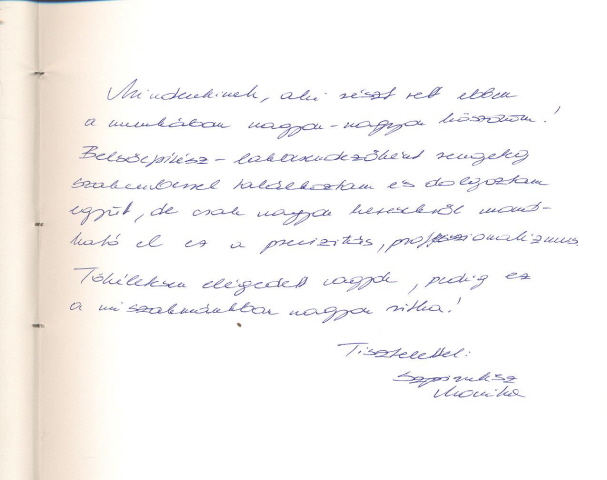 Mindenkinek, aki részt vett ebben
a munkában nagyon-nagyon köszönöm!
Belsőépítész-lakberendezőként rengeteg
szakemberrel találkoztam és dolgoztam
együtt, de csak nagyon kevesekről mond-
ható el ez a precizitás, professzionalizmus.
Tökéletesen elégedett vagyok, pedig ez
a mi szakmánkban nagyon ritka!
Tisztelettel:
Mónika